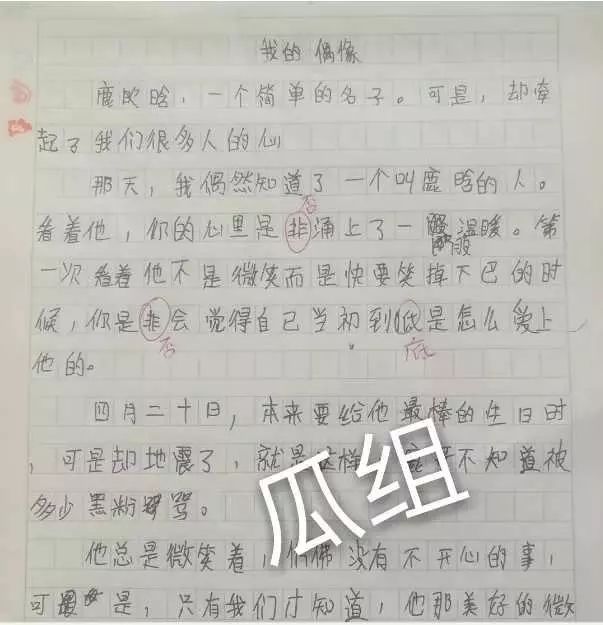 我的偶像
鹿晗,一个简单的名子。可是,却牵
起了我们很多人的心
那天,我偶然知道了一个叫鹿晗的人。
否
看着他,你的心里是非涌上了一温暖。第
一次看着他不是微笑而是快要笑掉下巴的时
候,你是非会觉得自己当初到低是怎么爱上
否 底
他的。
四月二十日,本来要给他最棒的生日时
,可是却地震了,就是这样 不知道被
多少黑粉骂。
瓜组
他总是微笑着,仿佛没有不开心的事,
可是,只有我们才知道,他那美好的微